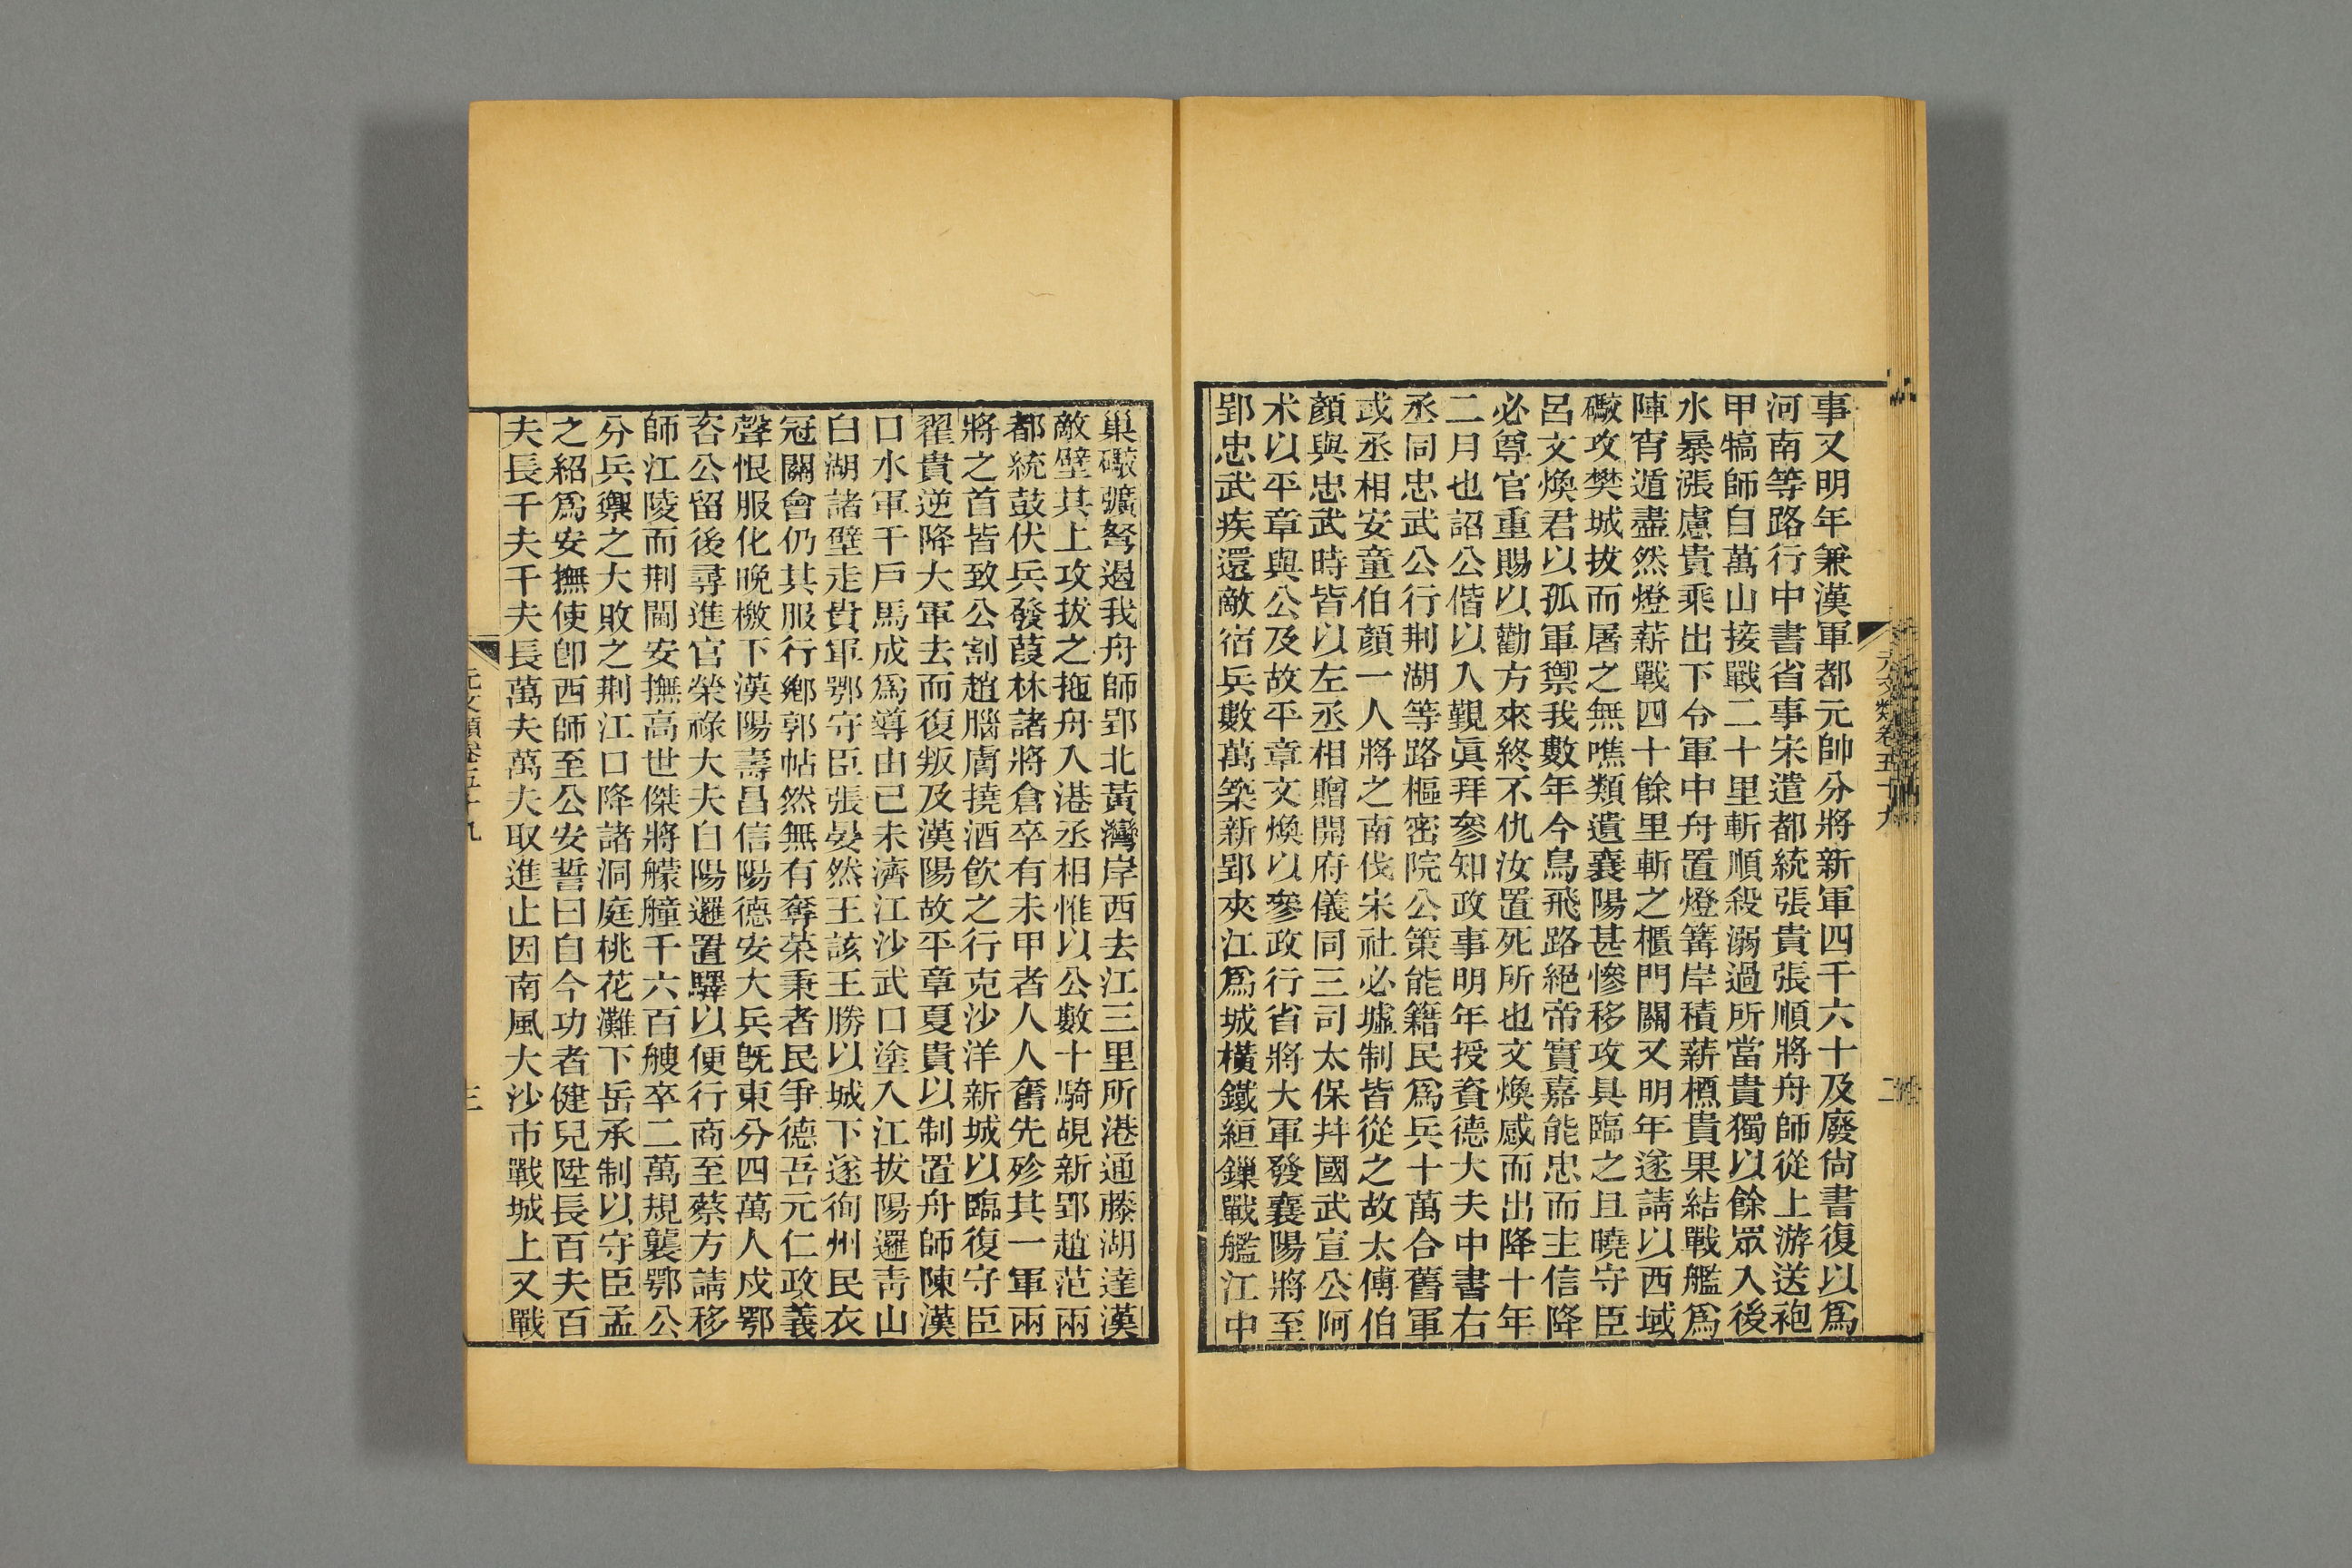 事又明年兼漢軍都元帥分將新軍四千六十及廢尙書復以爲
河南等路行中書省事宋遣都統張貴張順將舟師從上游送袍
甲犒師自萬山接戰二十里斬順殺溺過所當貴獨以餘眾入後
水暴漲慮貴乘出下令軍中舟置燈篝岸積薪槱貴果結戰艦爲
陣宵遁盡然燈薪戰四十餘里斬之櫃門關又明年遂請以西域
礮攻樊城拔而屠之無噍類遺襄陽甚慘移攻具臨之且曉守臣
呂文煥君以孤軍禦我數年今鳥飛路絕帝實嘉能忠而主信降
必尊官重賜以勸方來終不仇汝置死所也文煥感而出降十年
二月也詔公偕以入覲眞拜參知政事明年授資德大夫中書右
丞同忠武公行荆湖等路樞密院公策能籍民爲兵十萬合舊軍
或丞相安童伯顏一人將之南伐宋社必墟制皆從之故太傅伯
顏與忠武時皆以左丞相贈開府儀同三司太保幷國武宣公阿
朮以平章與公及故平章文煥以參政行省將大軍發襄陽將至
郢忠武疾還敵宿兵數萬築新郢夾江爲城橫鐵絙鏁戰艦江中
元文類卷五十九
二
巢礮彍弩遏我舟師郢北黃灣岸西去江三里所港通藤湖達漢
敵壁其上攻拔之拖舟入港丞相惟以公數十騎覘新郢趙范兩
都統鼓伏兵發葭林諸將倉卒有未甲者人人奮先殄其一軍兩
將之首皆致公割趙腦膚撓酒飮之行克沙洋新城以臨復守臣
翟貴逆降大軍去而復叛及漢陽故平章夏貴以制置舟師陳漢
口水軍千戶馬成爲導由已未濟江沙武口塗入江拔陽邏靑山
白湖諸壁走貴軍鄂守臣張晏然王該王勝以城下遂徇州民衣
冠關會仍其服行鄉郭帖然無有奪荣秉者民爭德吾元仁政義
聲恨服化晚檄下漢陽壽昌信陽德安大兵旣東分四萬人戍鄂
峇公留後尋進官榮祿大夫自陽邏置驛以便行商至蔡方請移
師江陵而荆閫安撫高世傑將艨艟千六百艘卒二萬規襲鄂公
分兵禦之大敗之荆江口降諸洞庭桃花灘下岳承制以守臣孟
之紹爲安撫使卽西師至公安誓曰自今功者健兒陞長百夫百
夫長千夫千夫長萬夫萬夫取進止因南風大沙市戰城上又戰
元文類卷五十九
三